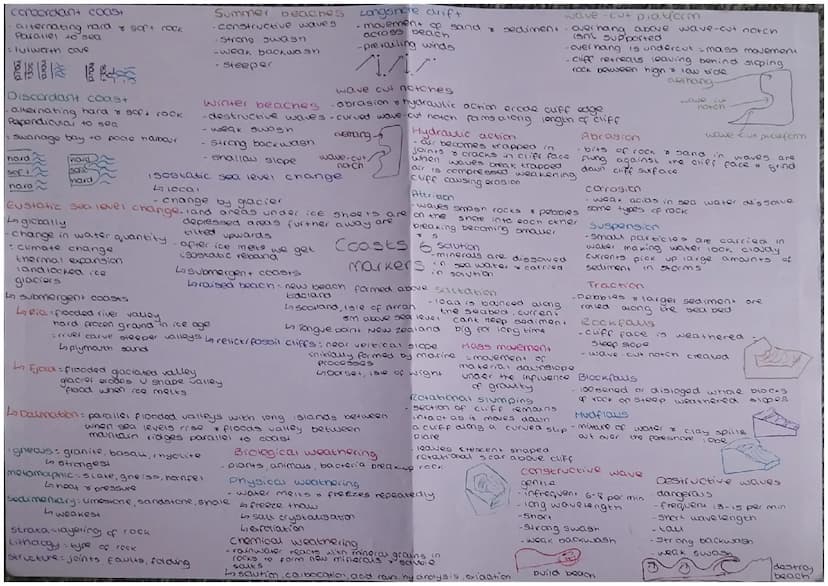 Concordant coast
- alternating hard & soft rock
Parallel to sea
: lulworth cove
Discordant coast
- alternating hard & soft rock
Papendicular to sea
: swanage bay to poole harbour
hard
soft
hard
hard
soft
hard
Summer beaches
- constructive waves
- strong swash
- weak backwash
- steeper
Winter beaches
- destructive waves
- weak swash
- strong backwash
- shallow slope
Longshore drift
- movement of sand & sediment
across beach
- prevailing winds
wave cut notches
- abrasion & hydraulic action erode cliff edge
- curved wave-cut notch forms along length of cliff
overhang
wave-cut
notch
wave-cut platform
- overhang above wave-cut notch
isnt supported
- overhang is undercut = mass movement
- cliff retreals leaving behind sloping
rock between high & low tide
overhang
wave cut
notch
wave cut platform
Isostatic sea level change
↳ local
- change by glacier
- land areas under ice sheets are
depressed areas further away are
tilted upwards
- after ice melts we get
isostatic rebound
↳ submergent coasts
↳ raised beach: new beach formed above
↳ Scotland, Isle of Arran
5m above sea level
↳ Tongue point New Zealand
↳ relict/fossil cliffs: near vertical slope
initially formed by marine
processes
↳ Dorset, Isle of Wight
Eustatic sea level change
↳ globally
- change in water quantity
: climate change
thermal expansion
landlocked ice
glaciers
↳ submergent coasts
↳ Ria: flooded river valley
hard frozen ground in ice age
: river carve steeper valleys
↳ plymouth sand
↳ Fjord: flooded glaciated valley
glacier erodes U shape valley
flood when ice melts
↳ Dalmation: parallel flooded valleys with long islands between
when sea levels rise & floods valley between
mountain ridges parallel to coast
Coasts
markers
Hydraulic action
- air becomes trapped in
joints & cracks in cliff face
when waves break trapped
air is compressed weakening
cliff causing erosion
Attrition
- waves smash rocks & pebbles
on the shore into each other
breaking becoming smaller
Solution
- minerals are dissolved
in sea water & carried
in solution
Saltation
- load is bounced along
the seabed, current
cant keep sediment
big for long time
Mass movement
= movement of
material downslope
under the influence
of gravity
Rotational slumping
- section of cliff remains
intact as it moves down
a cliff along a curved slip
plane
- leaves crescent shaped
rotational scar above cliff
Abrasion
- bits of rock & sand in waves are
flung against the cliff face & grind
down cliff surface
Corrosion
- weak acids in sea water dissolve
some types of rock
Suspension
- small particles are carried in
water making water look cloudy
currents pick up large amounts of
sediment in storms
Traction
- pebbles & larger sediment are
rolled along the sea bed
Rockfalls
- cliff face is weathered
- steep slope
- wave-cut notch created
Blockfalls
- loosened or dislodged whole blocks
of rock on steep weathered slopes
Mudflows
- mixture of water & clay spills
out over the foreshore
: lobe
igneous: granite, basalt, rhyolite
↳ strongest
metamorphic: slate, gneiss, hornfel
↳ heat & pressure
sedimentary: limestone, sandstone, shale
↳ weakest
strata: layering of rock
lithology: type of rock
structure: joints faults, folding
Biological weathering
- plants, animals, bacteria breakup
rock
Physical weathering
- water melts & freezes repeatedly
↳ freeze thaw
↳ salt crystalisation
↳ exfoliation
Chemical weathering
- rainwater reacts with mineral grains in
rocks to form new minerals & soluble
salts
↳ solution, carbonation acid rain, hydrolysis, oxidation
Constructive wave
gentle
- infrequent 6-8 per min
- long wavelength
- short
- strong swash
- weak backwash
build beach
Destructive waves
dangerous
- frequent 13-15 per min
- short wavelength
- tall
- strong backwash
weak swash
destroy
beach